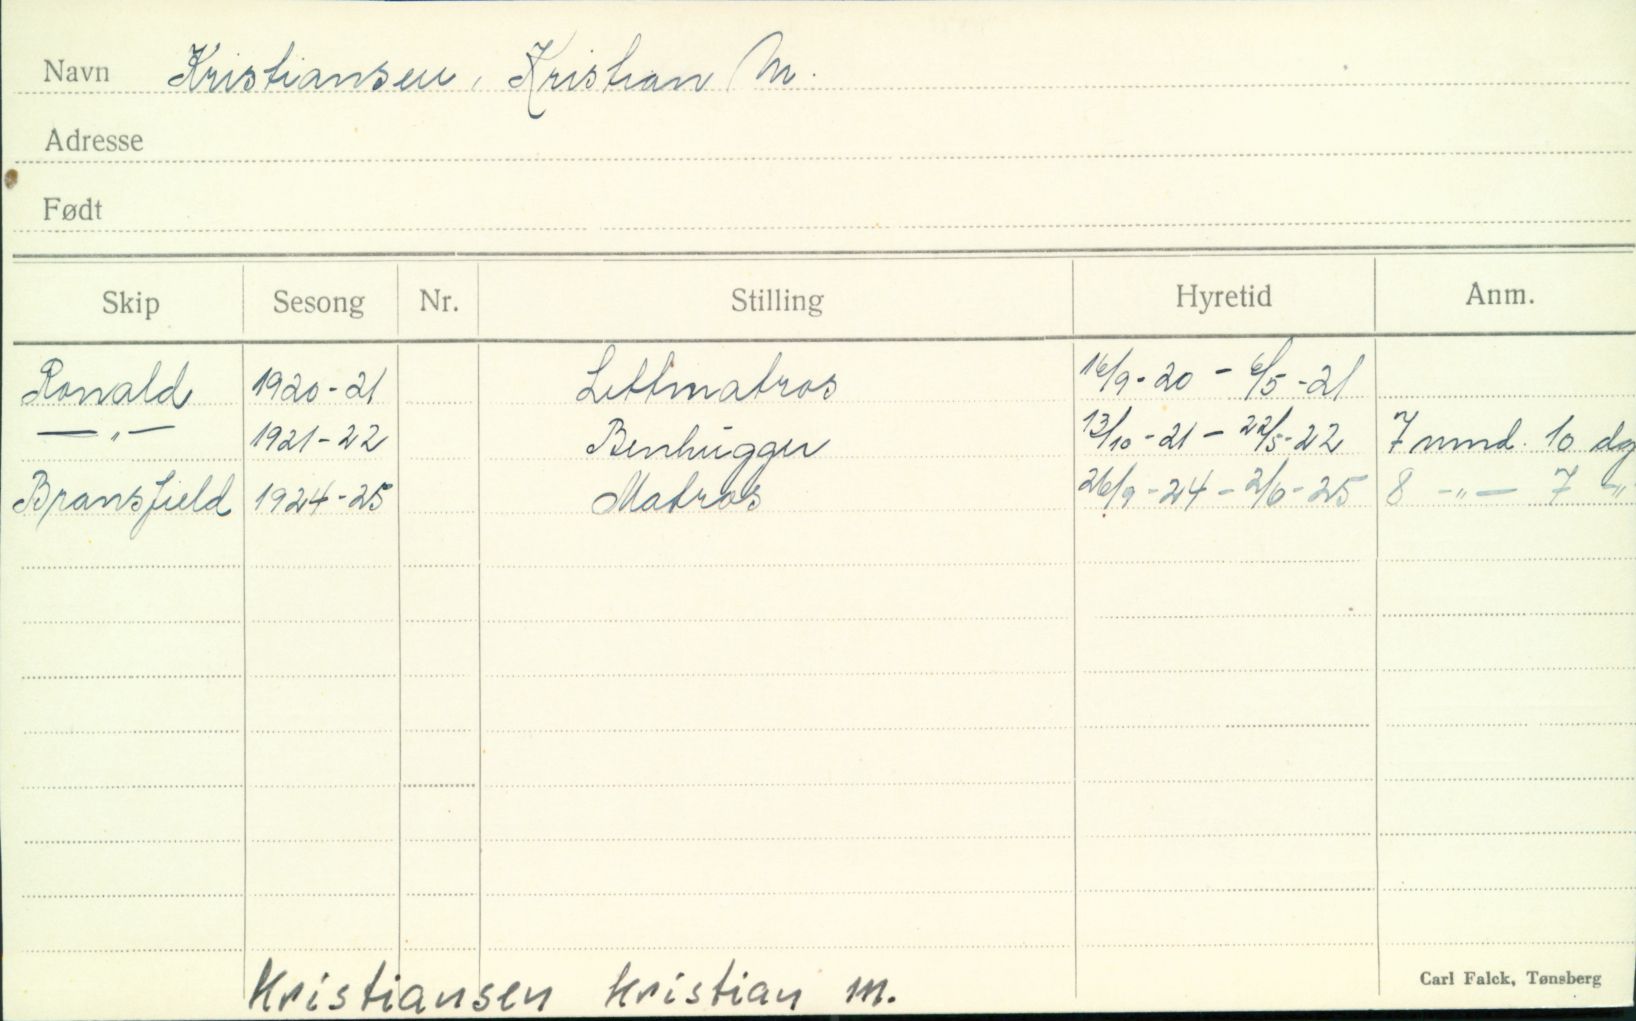 Navn Kristiansen, Kristian M.
Adresse
Født
Skip Sesong Nr. Stilling Hyretid Anm.
Ronald 1920-21 Lettmatros 16/9-20 - 6/5-21
—„— 1921-22 Benhugger 13/10-21 - 22/5-22 7 mnd. 10 dg
Bransfield 1924-25 Matros 26/9-24 - 2/6-25 8 -„- 7 -„
Kristiansen Kristian M.
Carl Falck, Tønsberg